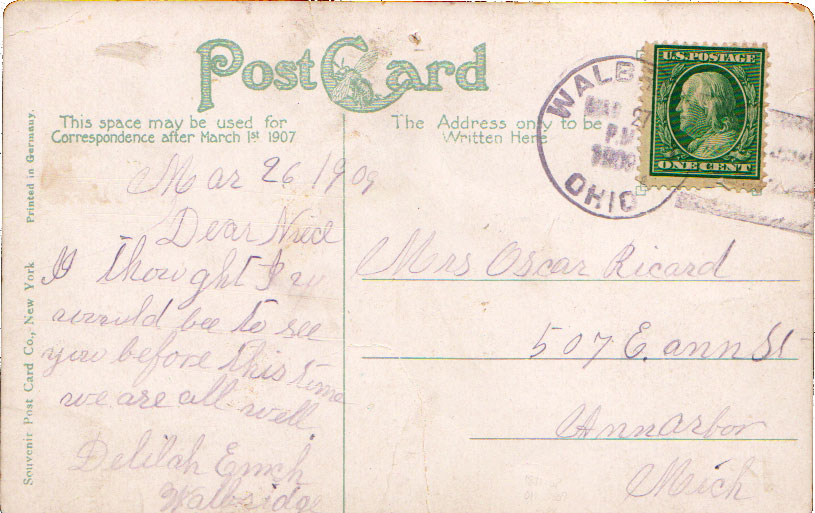 Post Card
This space may be used for
Correspondence after March 1st 1907
The Address only to be
Written Here
WALB
27
P.M
1909
OHIO
U.S. POSTAGE
ONE CENT
Printed in Germany.
Souvenir Post Card Co., New York
Mar 26 1909
Dear Niece
I thought I
would bee to see
you before this time
we are all well
Delilah Emch
Walbridge
Mrs Oscar Ricard
507 E. ann St
Annarbor
Mich